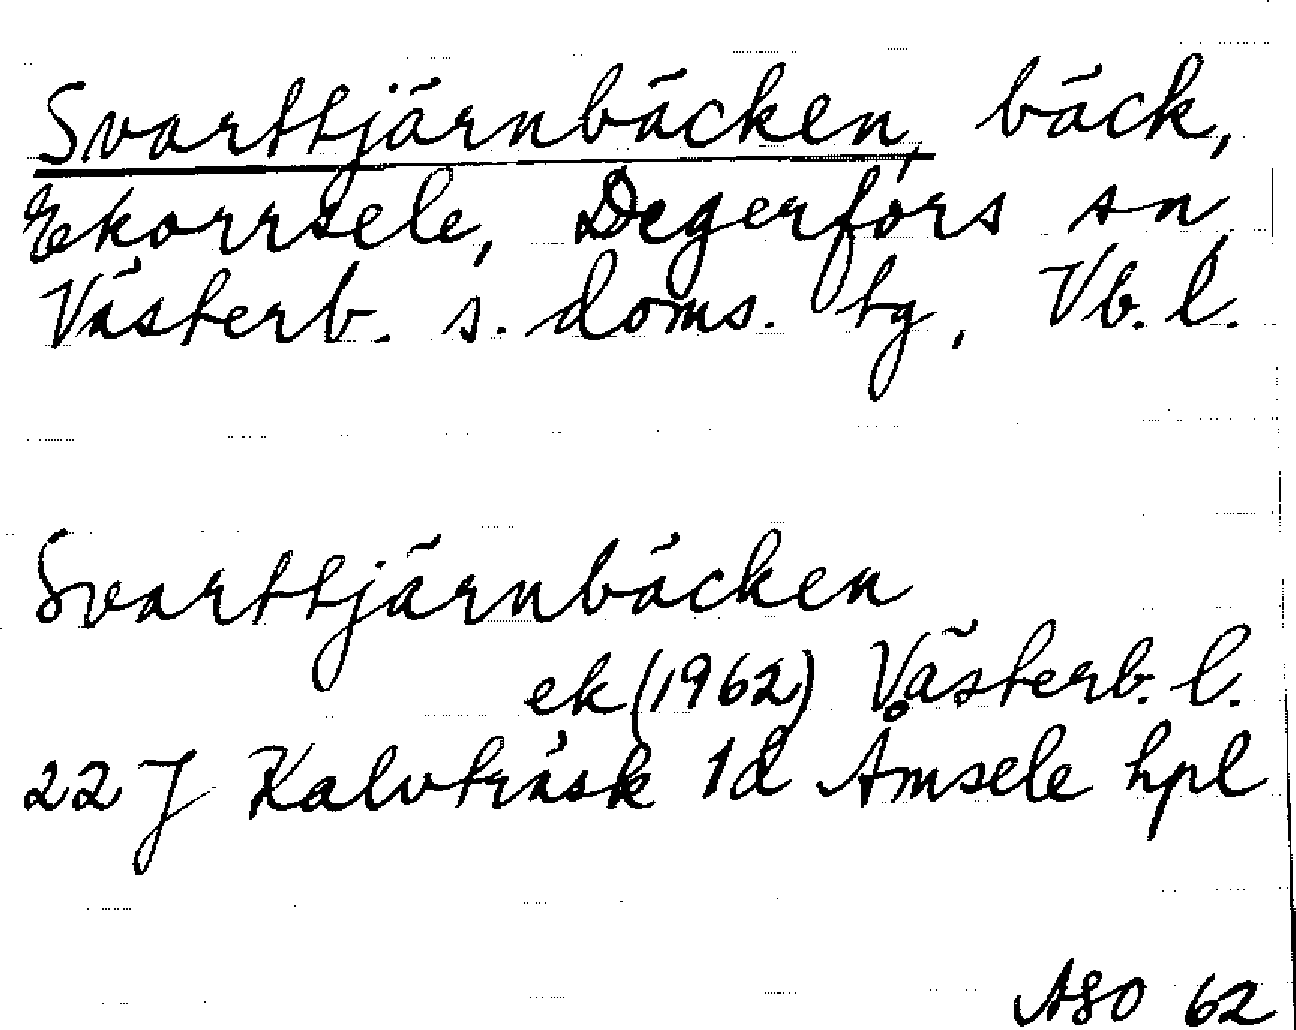 Svarttjärnbäcken, bäck,
Ekorrsele, Degerfors sn,
Västerb. s. doms. tg, Vb. l.
Svarttjärnbäcken
ek (1962) Västerb. l.
22 J Kalvträsk 1d Åmsele hpl
ASO 62